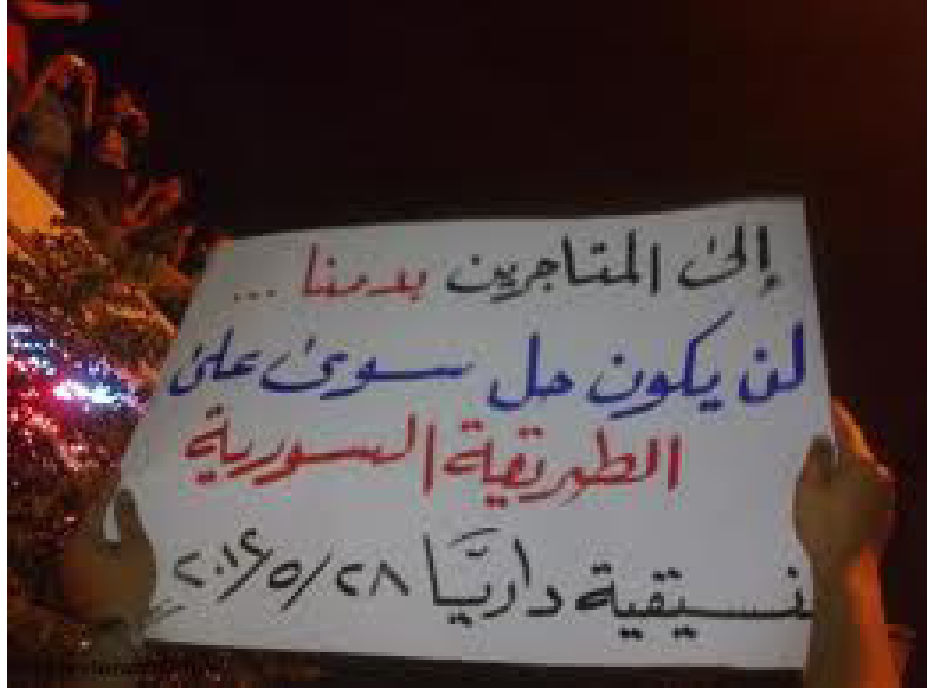 إلى المتاجرين بدمنا ...
لن يكون حل سوى على
الطريقة السورية
تنسيقية داريّا ٢٠١٢/٥/٢٨